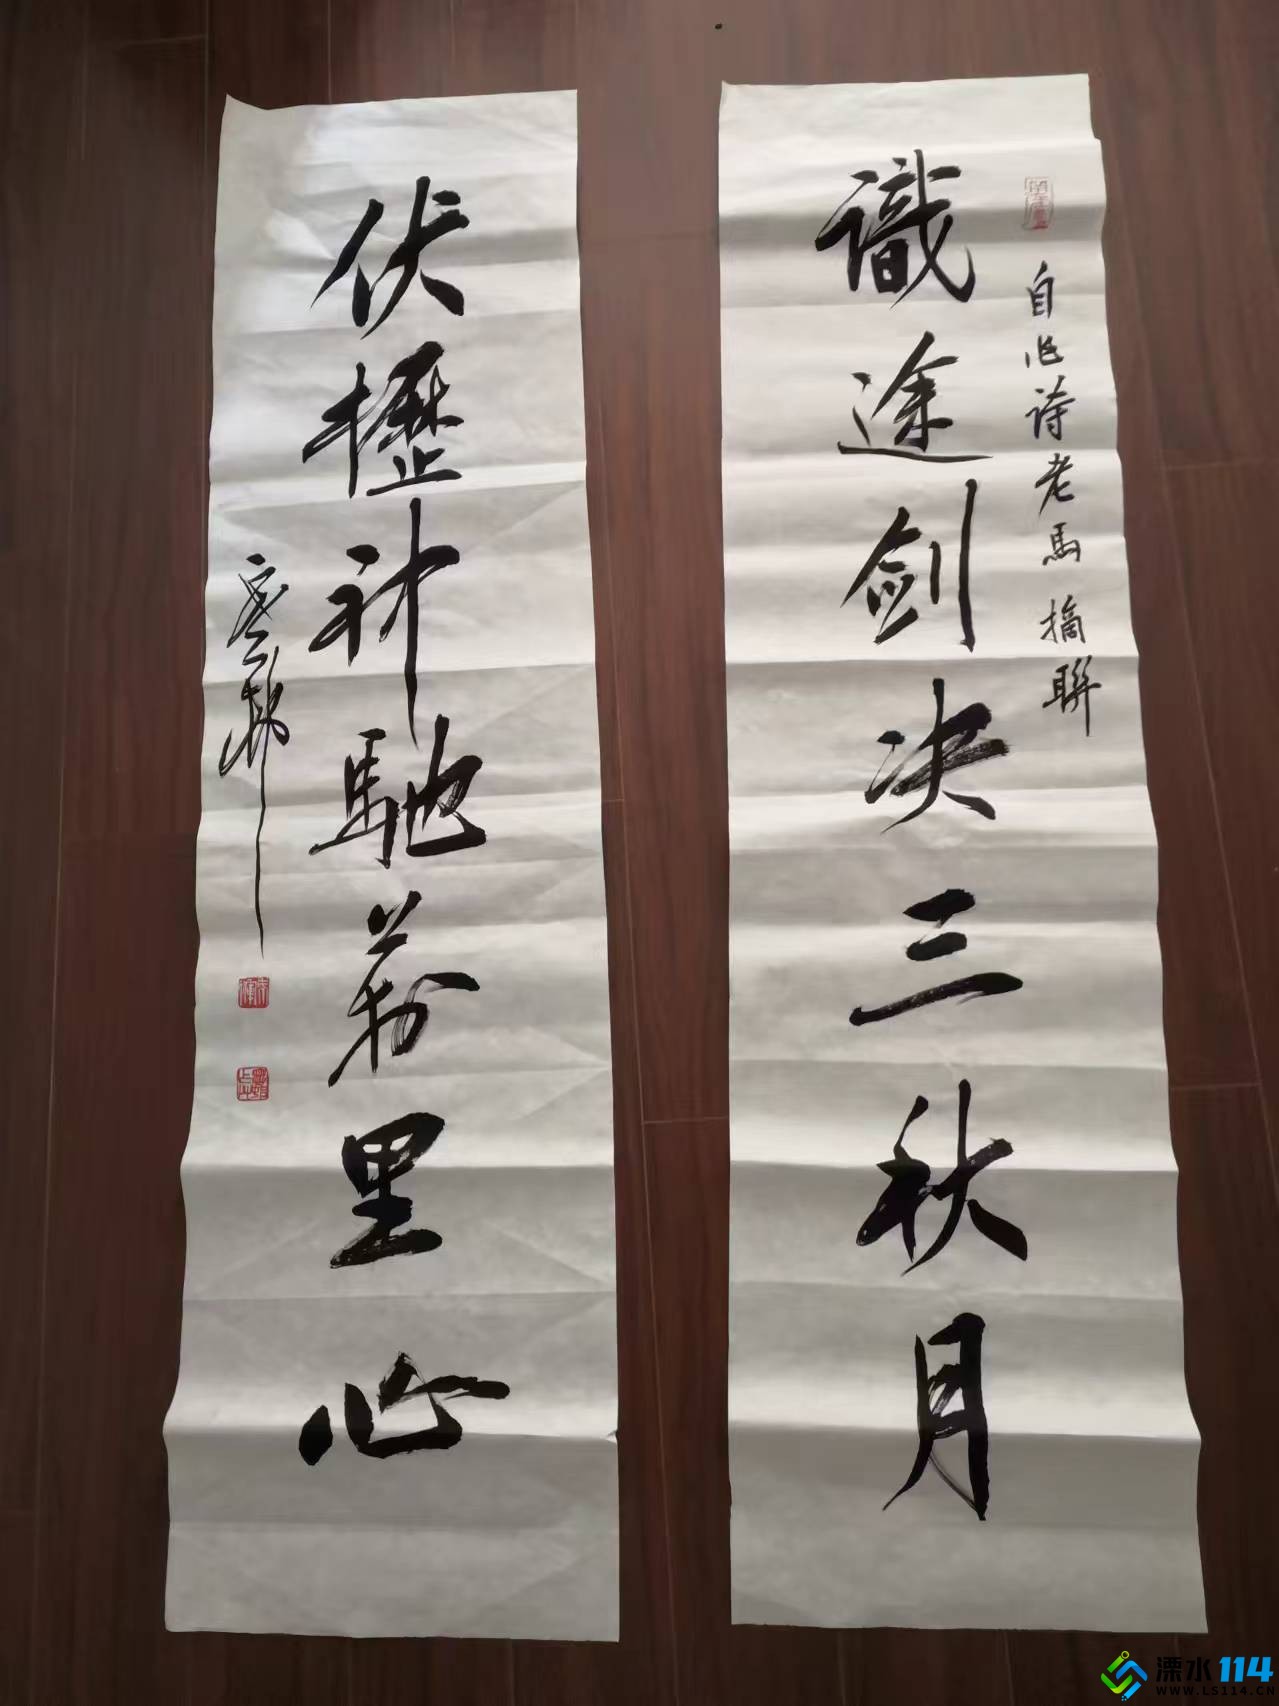 自作诗老馬摘聯
識途剑决三秋月
伏櫪神馳萬里心
溧水114
WWW.LS114.CN